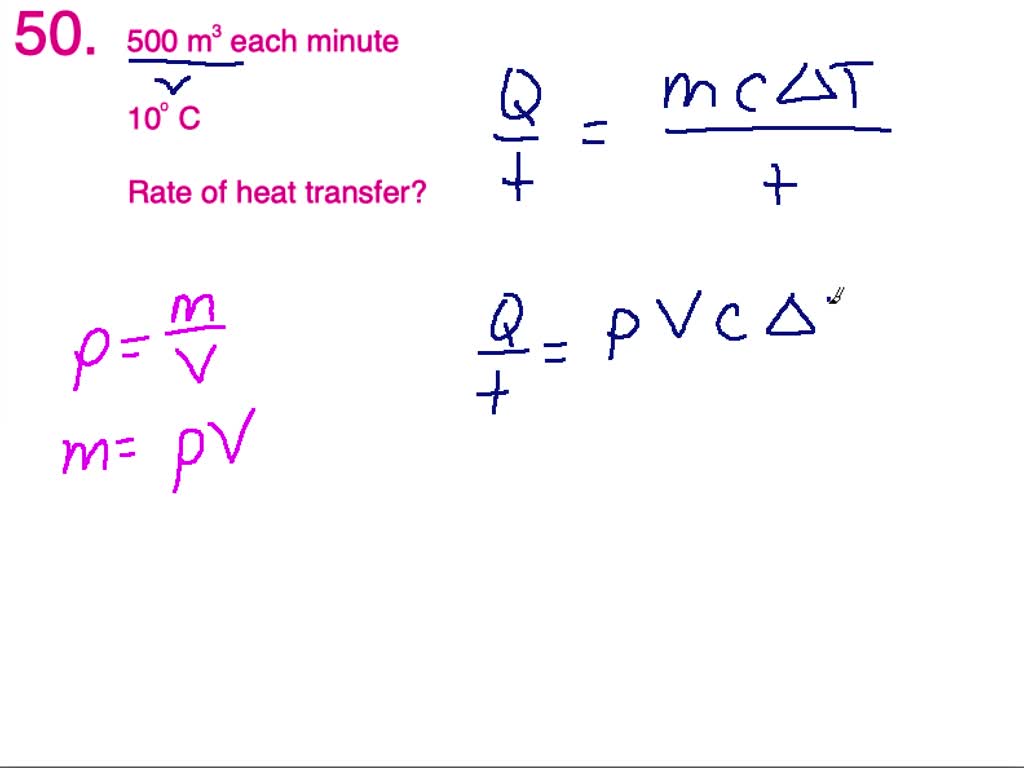 50. 500 m³ each minute
V
10° C
Rate of heat transfer?
Q/t = mcΔT/t
ρ = m/V
m = ρV
Q/t = ρVcΔ